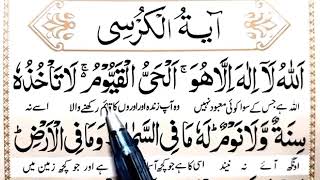 آیۃُ الْکُرْسِی
اَللّٰهُ لَاۤ اِلٰهَ اِلَّا هُوَ ۚ اَلْحَیُّ الْقَیُّوْمُ ۚ لَا تَاْخُذُهٗ
اللہ ہے جس کے سوا کوئی معبود نہیں وہ آپ زندہ اور اوروں کا قائم رکھنے والا اسے نہ
سِنَةٌ وَّلَا نَوْمٌ ؕ لَهٗ مَا فِی السَّمٰ وَمَا فِی الْاَرْضِ ؕ
اونگھ آئے نہ نیند اسی کا ہے جو کچھ آسما ہے اور جو کچھ زمین میں